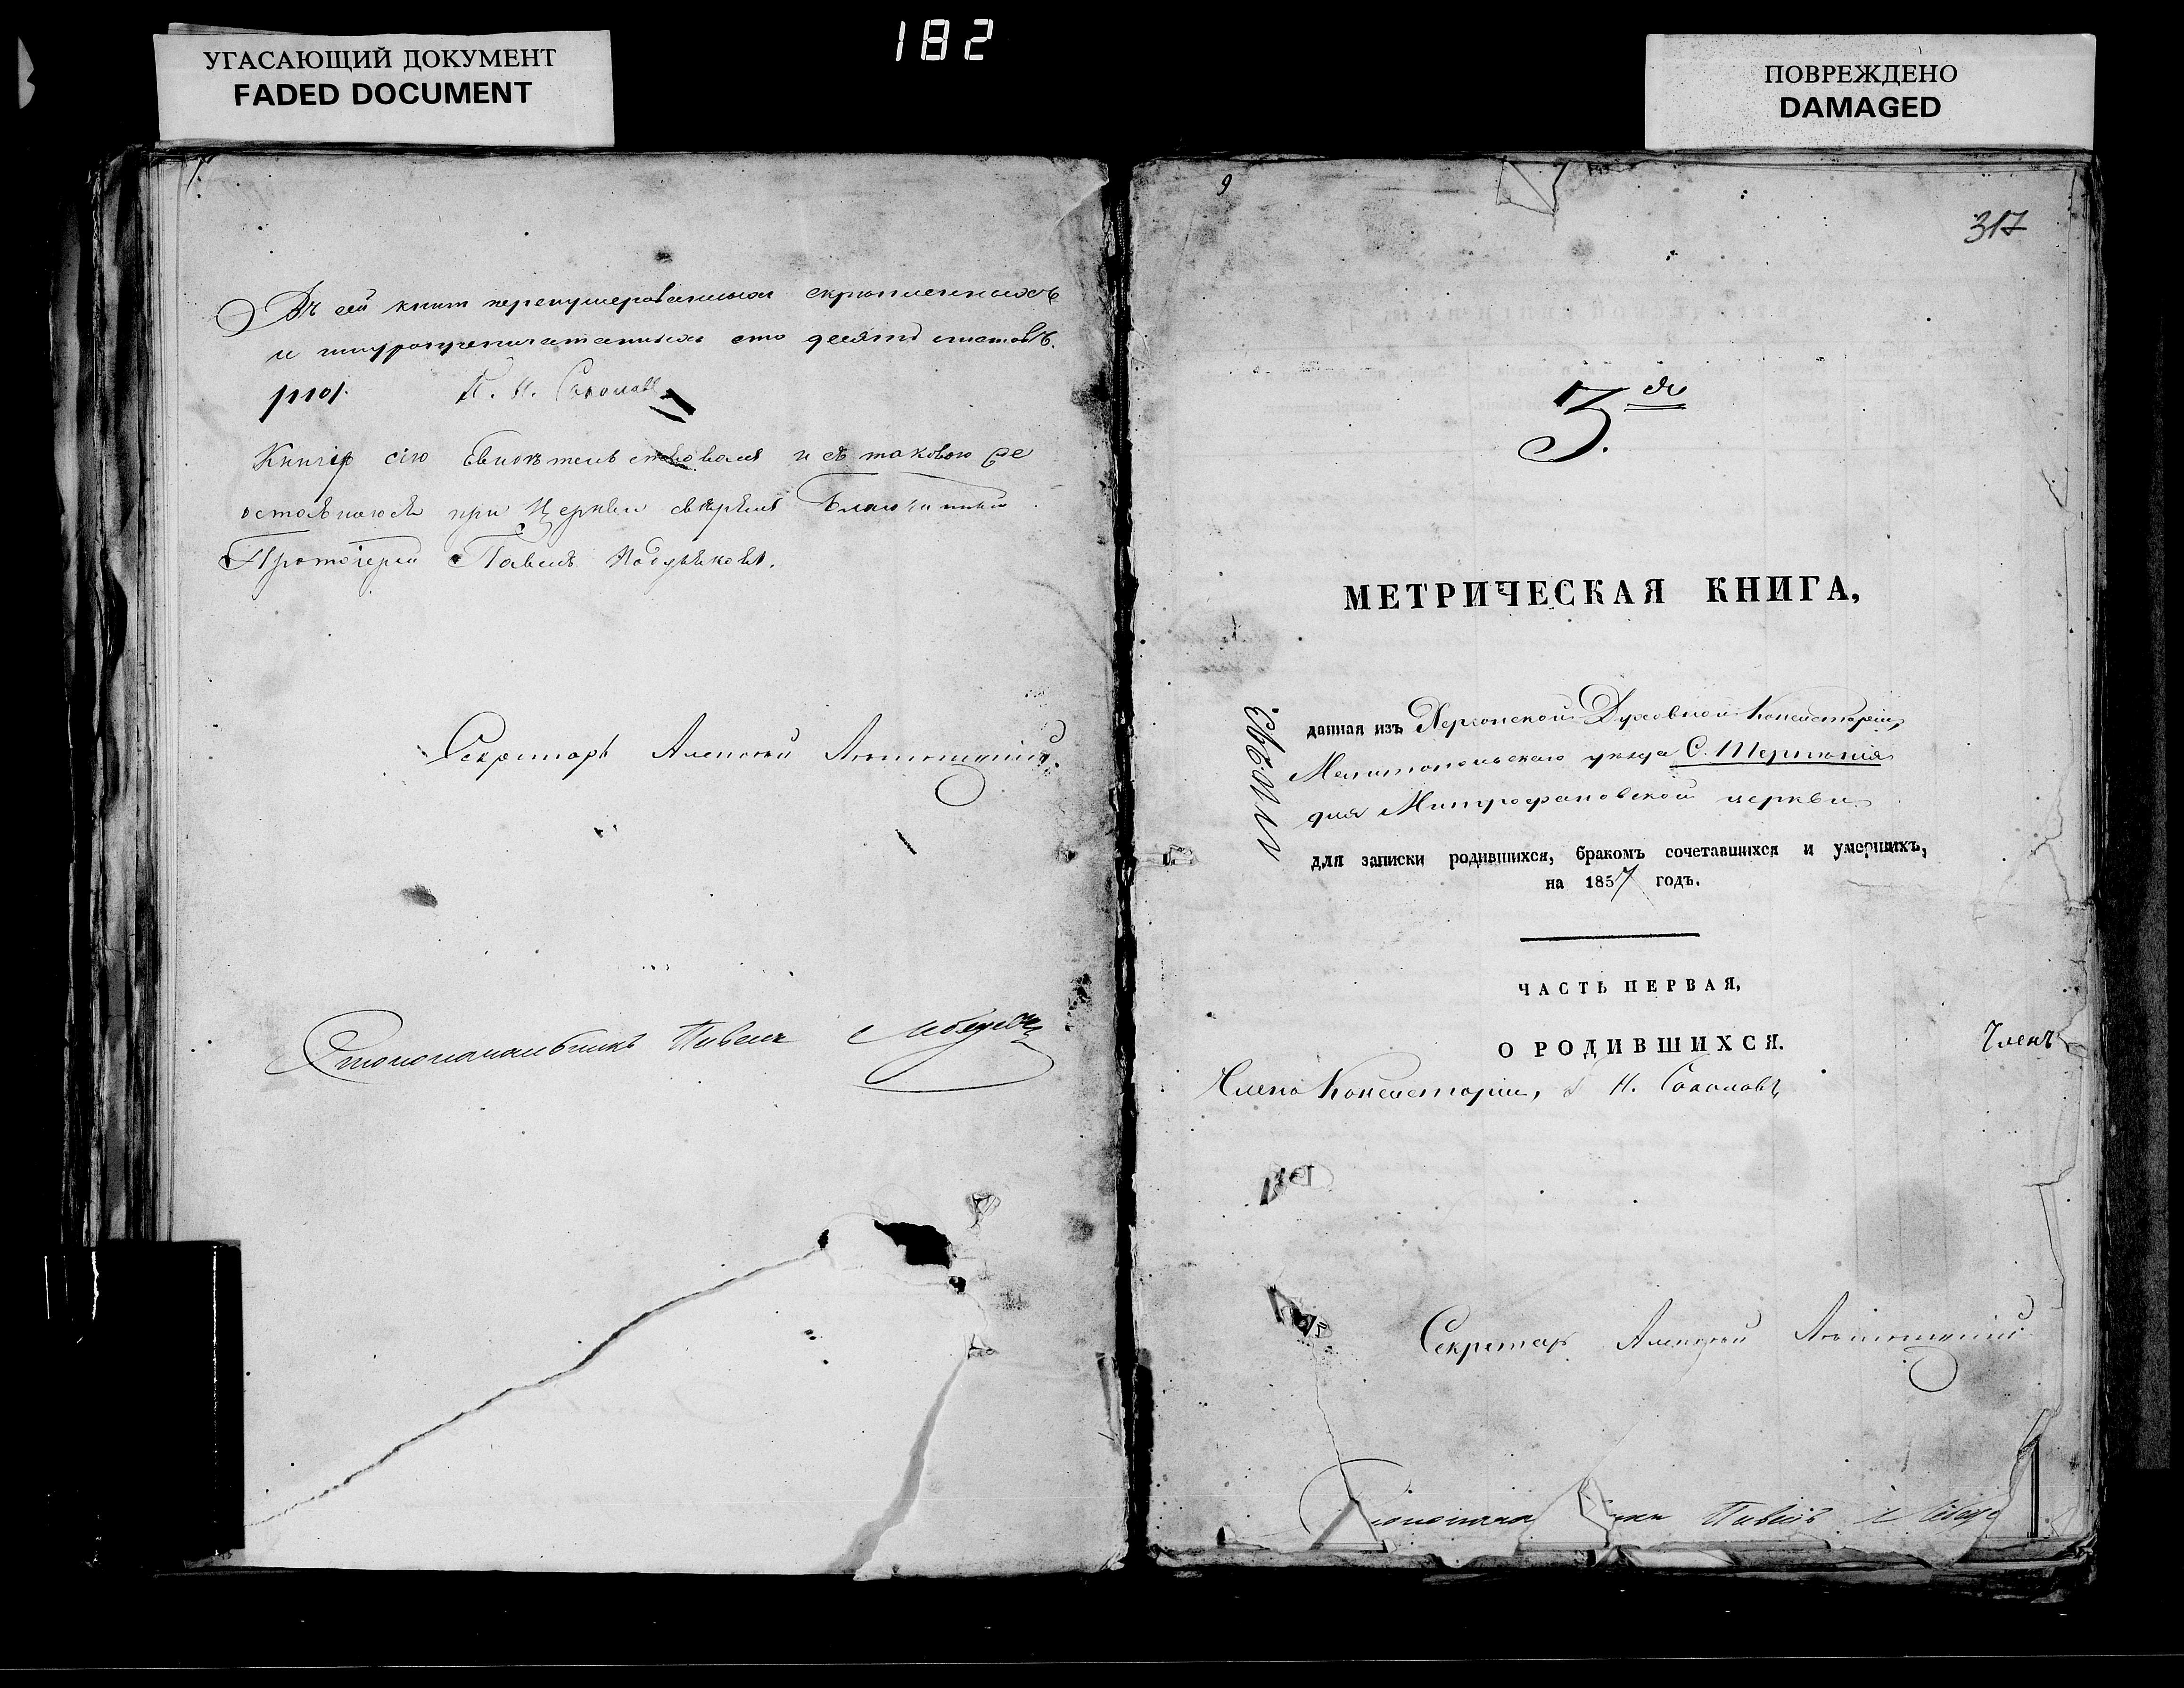 182
УГАСАЮЩИЙ ДОКУМЕНТ
FADED DOCUMENT
ПОВРЕЖДЕНО
DAMAGED
Въ сей книги перенумерованныхъ скрѣпленныхъ
и шнуропрепечатанныхъ сто десять листовъ.
110/.
Н. Соколовъ
Книгу сію свидѣтельствовалъ и съ таковою же
остальною при Церкви свѣрялъ Благочинный
Протоіерей Павелъ
Секретарь Алексій
Столоначальникъ Павелъ Лебедевъ
9
317
3.я
МЕТРИЧЕСКАЯ КНИГА,
данная изъ Херсонской Духовной Консисторіи,
Мелитопольскаго уѣзда С. Терпѣнія
для Митрофановской церкви
для записки родившихся, бракомъ сочетавшихся и умершихъ,
на 1857 годъ.
ЧАСТЬ ПЕРВАЯ,
О РОДИВШИХСЯ.
Членъ
Члено Консисторіи, Н. Соколовъ
Секретарь Алексій
Павелъ